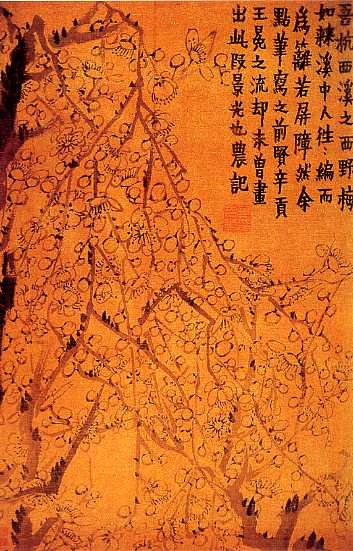 吾杭西溪之西野梅
如棘溪中人往〻編而
為籬若屏障然余
點筆寫之前賢辛貢
王冕之流却未曾畫
出此段景光也農記